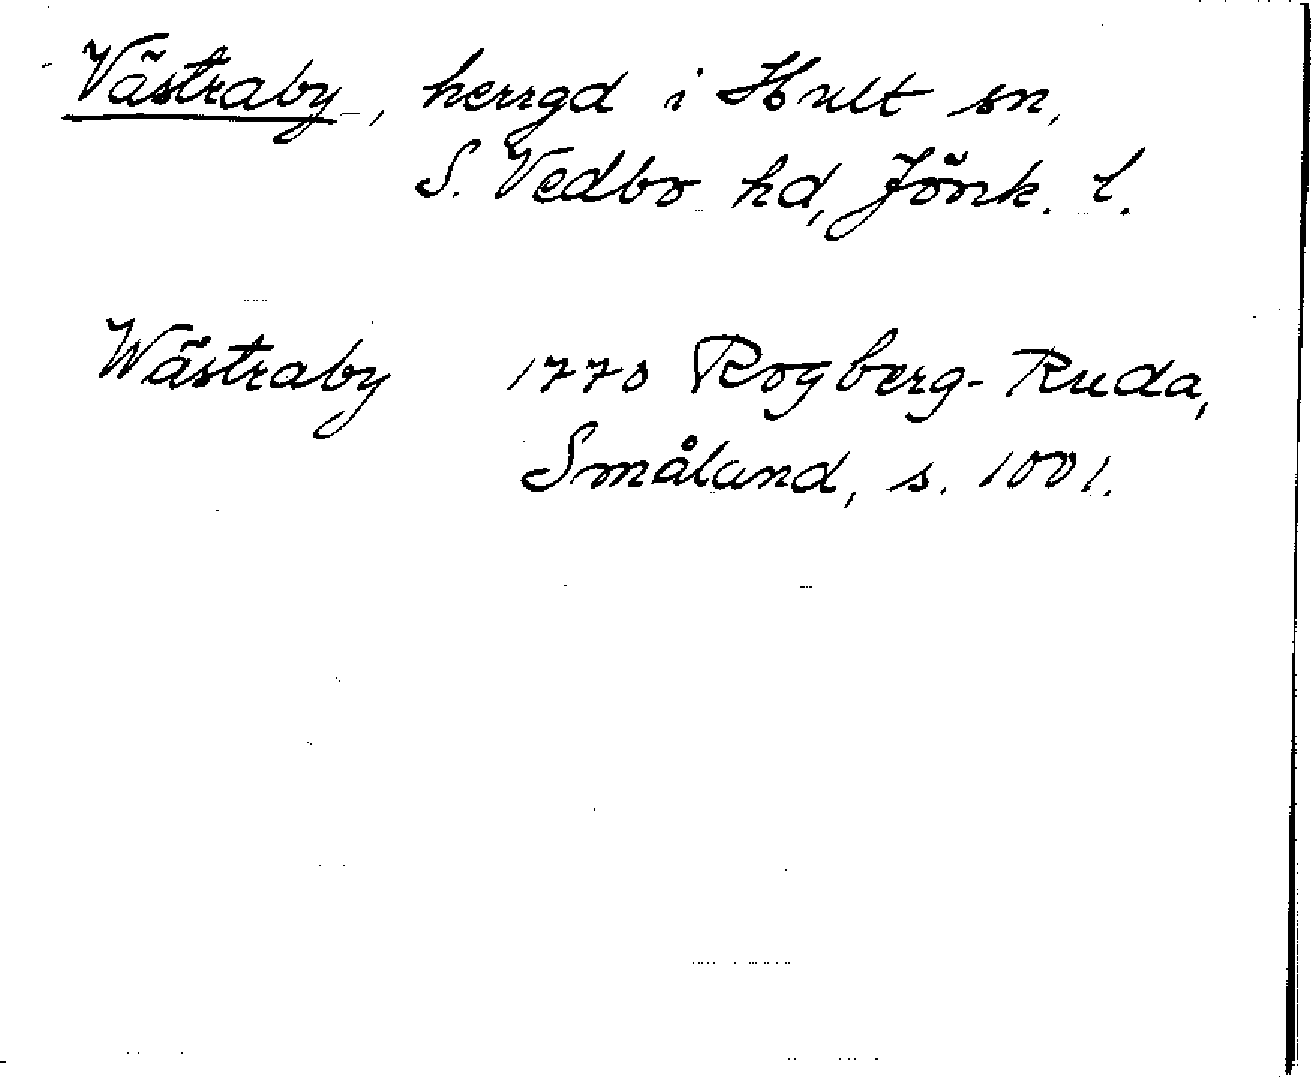 Västraby, herrgd i Hult sn,
S. Vedbo hd, Jönk. l.
Wästraby 1770 Rogberg-Ruda,
Småland, s. 1001.